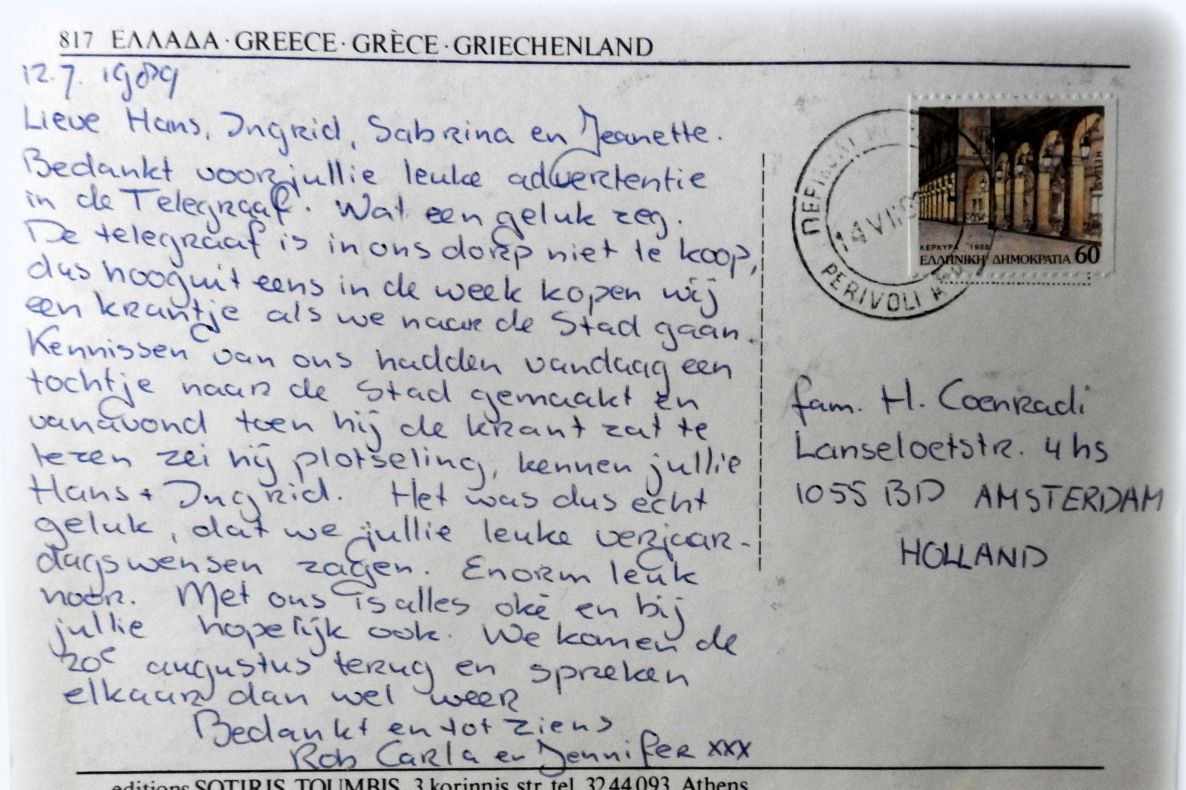 817 ΕΛΛΑΔΑ · GREECE · GRÈCE · GRIECHENLAND
12.7. 1989
Lieve Hans, Ingrid, Sabrina en Jeanette.
Bedankt voor jullie leuke advertentie
in de Telegraaf. Wat een geluk zeg.
De telegraaf is in ons dorp niet te koop,
dus hooguit eens in de week kopen wij
een krantje als we naar de Stad gaan.
Kennissen van ons hadden vandaag een
tochtje naar de Stad gemaakt en
vanavond toen hij de krant zat te
lezen zei hij plotseling, kennen jullie
Hans + Ingrid. Het was dus echt
geluk, dat we jullie leuke verjaar-
dagswensen zagen. Enorm leuk
hoor. Met ons is alles oké en bij
jullie hopelijk ook. We komen de
20e augustus terug en spreken
elkaar dan wel weer
Bedankt en tot ziens
Rob Carla en Jennifer xxx
ΚΕΡΚΥΡΑ 1988
ΕΛΛΗΝΙΚΗ ΔΗΜΟΚΡΑΤΙΑ 60
14 VII 89
PERIVOLI
fam. H. Coenradi
Lanseloetstr. 4 hs
1055 BD AMSTERDAM
HOLLAND
editions SOTIRIS TOUMBIS, 3 korinnis str. tel. 3244093, Athens